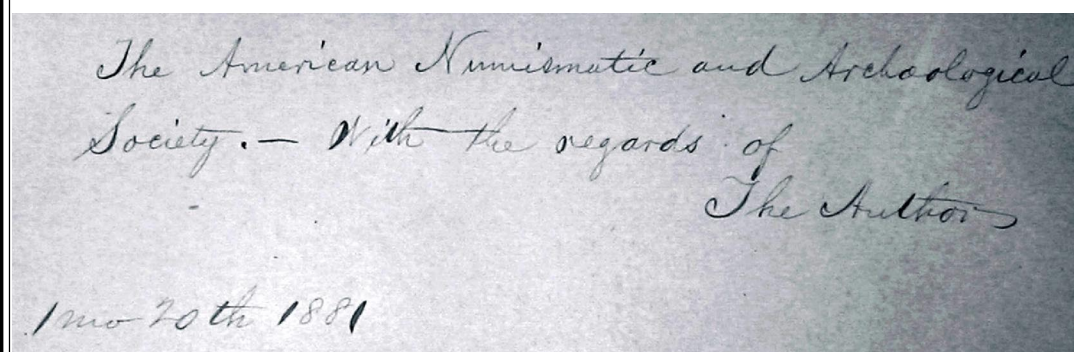 The American Numismatic and Archæological
Society. — With the regards of
The Author
1 mo 20th 1881